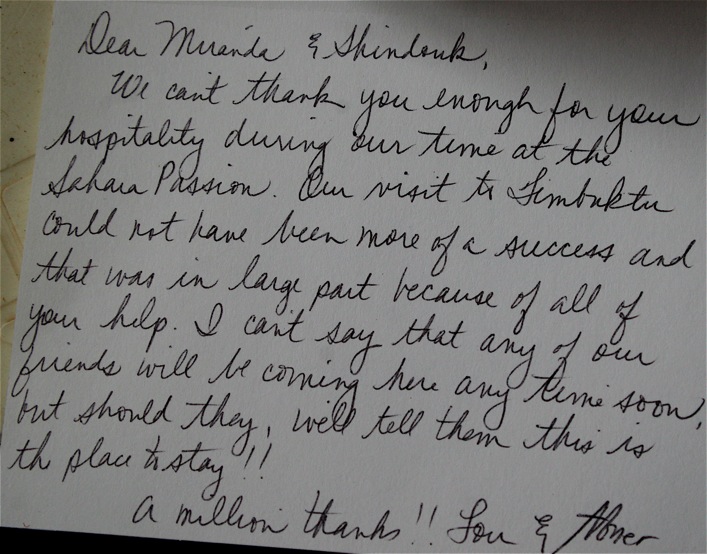 Dear Miranda & Shindouk,
We can't thank you enough for your
hospitality during our time at the
Sahara Passion. Our visit to Timbuktu
could not have been more of a success and
that was in large part because of all of
your help. I can't say that any of our
friends will be coming here any time soon,
but should they, we'll tell them this is
th place to stay!!
A million thanks!! Lou & Abner